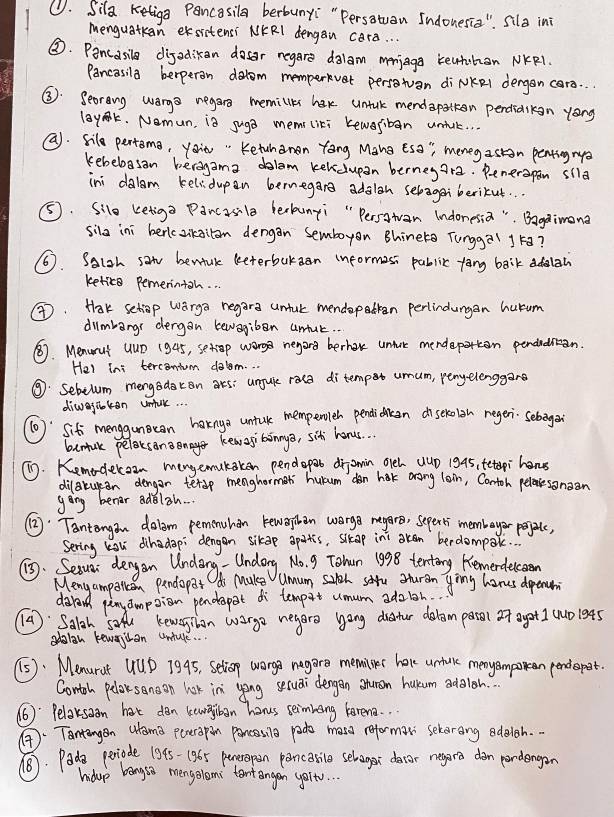 ①. Sila Ketiga Pancasila berbunyi "Persatuan Indonesia". Sila ini
menguatkan eksistensi NKRI dengan cara...
②. Pancasila dijadikan dasar negara dalam menjaga keutuhan NKRI.
Pancasila berperan dalam memperkuat persatuan di NKRI dengan cara...
③. Seorang warga negara memiliki hak untuk mendapatkan pendidikan yang
layak. Namun, ia juga memiliki kewajiban untuk...
④. Sila pertama, yaitu "Ketuhanan Yang Maha Esa", menegaskan pentingnya
kebebasan beragama dalam kehidupan bernegara. Penerapan sila
ini dalam kehidupan bernegara adalah sebagai berikut...
⑤. Sila ketiga Pancasila berbunyi "Persatuan Indonesia". Bagaimana
sila ini berkaitan dengan semboyan Bhineka Tunggal Ika?
⑥. Salah satu bentuk keterbukaan informasi publik yang baik adalah
ketika Pemerintah...
⑦. Hak setiap warga negara untuk mendapatkan perlindungan hukum
diimbangi dengan kewajiban untuk...
⑧. Menurut UUD 1945, setiap warga negara berhak untuk mendapatkan pendidikan.
Hal ini tercantum dalam...
⑨. Sebelum mengadakan aksi unjuk rasa di tempat umum, penyelenggara
diwajibkan untuk ...
⑩. Siti menggunakan haknya untuk memperoleh pendidikan di sekolah negeri. Sebagai
bentuk pelaksanaannya kewajibannya, siti harus...
⑪. Kemerdekaan mengemukakan pendapat dijamin oleh UUD 1945, tetapi harus
dilakukan dengan tetap menghormati hukum dan hak orang lain, Contoh pelaksanaan
yang benar adalah...
⑫. Tantangan dalam pemenuhan kewajiban warga negara, seperti membayar pajak,
sering kali dihadapi dengan sikap apatis, sikap ini akan berdampak...
⑬. Sesuai dengan Undang-Undang No.9 Tahun 1998 tentang Kemerdekaan
Menyampaikan Pendapat di Muka Umum, salah satu aturan yang harus dipenuhi
dalam penyampaian pendapat di tempat umum adalah...
⑭. Salah satu kewajiban warga negara yang diatur dalam pasal 27 ayat 1 UUD 1945
adalah kewajiban untuk...
⑮. Menurut UUD 1945, setiap warga negara memiliki hak untuk menyampaikan pendapat.
Contoh pelaksanaan hak ini yang sesuai dengan aturan hukum adalah...
⑯. Pelaksaan hak dan kewajiban harus seimbang karena...
⑰. Tantangan utama penerapan pancasila pada masa reformasi sekarang adalah...
⑱. Pada periode 1945-1965 penerapan pancasila sebagai dasar negara dan pandangan
hidup bangsa mengalami tantangan yaitu...